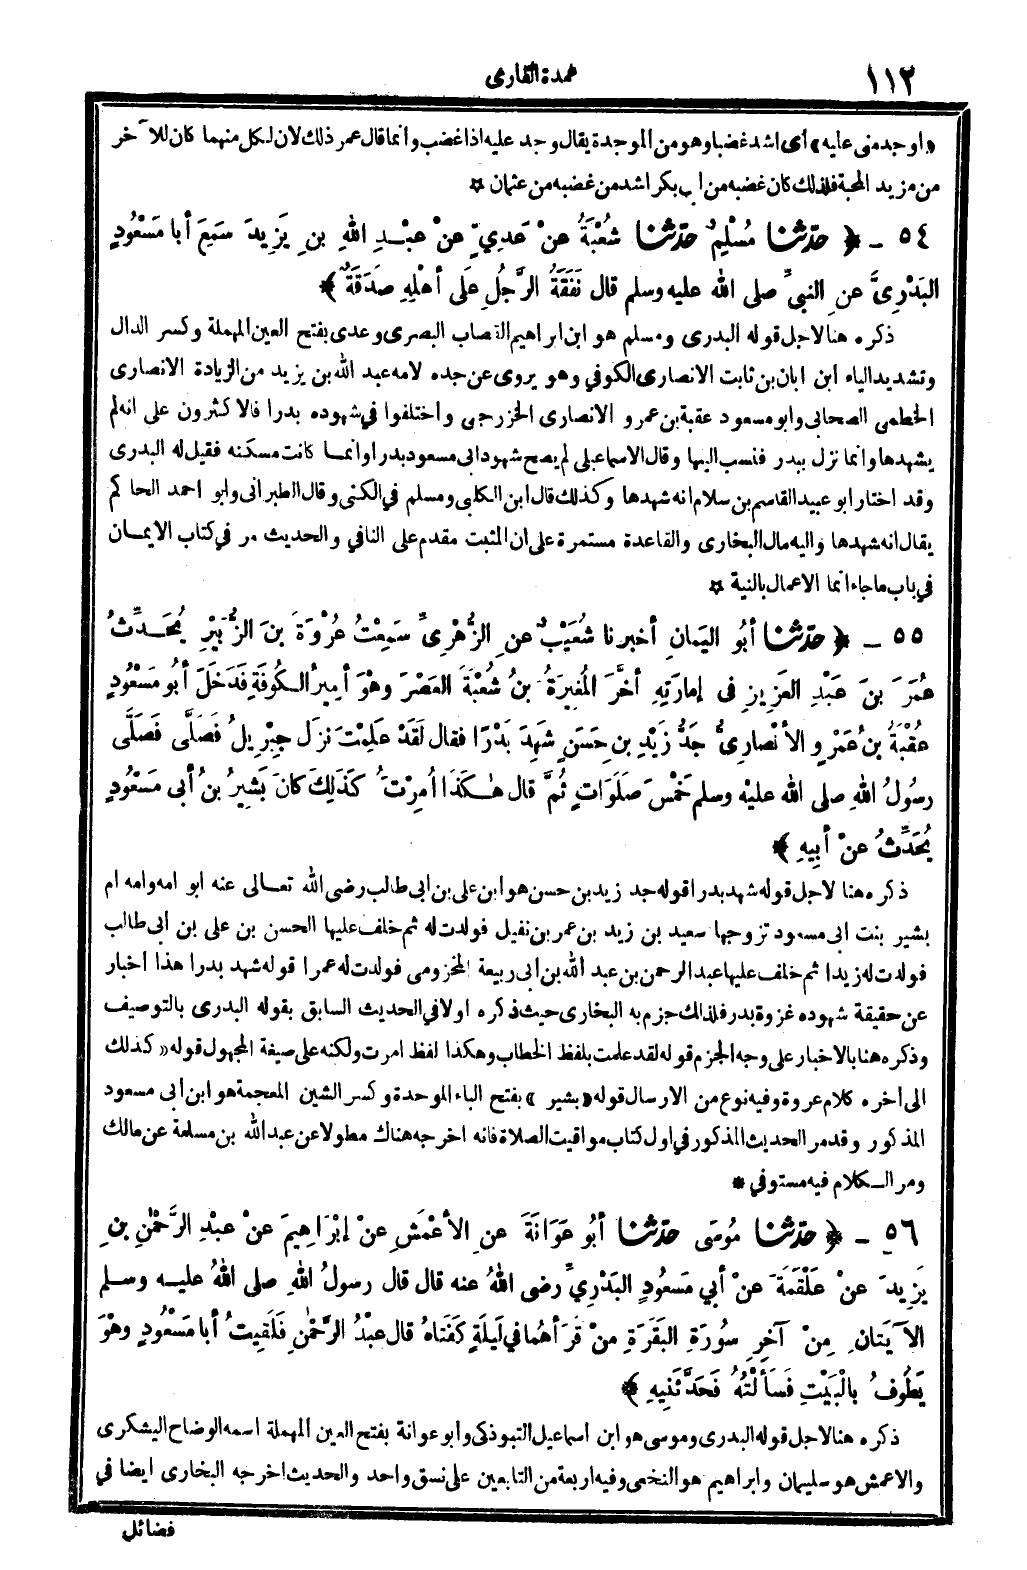 ١١٢
عمدة القارى
«اوجد منى عليه» أى اشد غضبا وهو من الموجدة يقال وجد عليه اذا غضب وانما قال عمر ذلك لان لكل منهما كان للآخر
من مزيد المحبة فلذلك كان غضبه من ابى بكر اشد من غضبه من عثمان ۞
٥٤ ـ ﴿ حدّثنا مُسْلِمٌ حدّثنا شُعْبَةُ عنْ عَدِيٍّ عنْ عبْدِ اللهِ بنِ يَزِيدَ سَمِعَ أبا مَسْعُودٍ
البَدْرِىَّ عنِ النبىِّ صلى الله عليه وسلم قال نَفَقَةُ الرَّجُلِ عَلَى أهْلِهِ صَدَقَةٌ ﴾
ذكره هنا لاجل قوله البدرى ومسلم هو ابن ابراهيم القصاب البصرى وعدى بفتح العين المهملة وكسر الدال
وتشديد الياء ابن ابان بن ثابت الانصارى الكوفي وهو يروى عن جده لامه عبد الله بن يزيد من الزيادة الانصارى
الخطمى الصحابى وابو مسعود عقبة بن عمرو الانصارى الخزرجى واختلفوا في شهوده بدرا فالاكثرون على انه لم
يشهدها وانما نزل ببدر فنسب اليها وقال الاسماعيلى لم يصح شهود ابى مسعود بدرا وانما كانت مسكنه فقيل له البدرى
وقد اختار ابو عبيد القاسم بن سلام انه شهدها وكذلك قال ابن الكلبى ومسلم في الكنى وقال الطبرانى وابو احمد الحاكم
يقال انه شهدها واليه مال البخارى والقاعدة مستمرة على ان المثبت مقدم على النافي والحديث مر في كتاب الايمان
في باب ما جاء انما الاعمال بالنية ۞
٥٥ ـ ﴿ حدّثنا أبُو اليَمانِ أخبرنا شُعَيْبٌ عنِ الزُّهْرِىِّ سَمِعْتُ عُرْوَةَ بنَ الزُّبَيْرِ يُحَدِّثُ
عُمَرَ بنَ عَبْدِ العَزِيزِ فى إمارَتِهِ أخَّرَ المُغِيرَةُ بنُ شُعْبَةَ العَصْرَ وهْوَ أمِيرُ الكُوفَةِ فَدَخَلَ أبُو مَسْعُودٍ
عُقْبَةُ بنُ عَمْرٍو الأنْصارِىُّ جَدُّ زَيْدِ بنِ حَسَنٍ شَهِدَ بَدْرًا فقال لَقَدْ عَلِمْتَ نَزَلَ جِبْرِيلُ فَصَلَّى فَصَلَّى
رسُولُ اللهِ صلى الله عليْه وسلم خَمْسَ صَلَوَاتٍ ثُمَّ قال هٰكَذَا أُمِرْتَ كَذَلِكَ كانَ بَشِيرُ بنُ أبى مَسْعُودٍ
يُحَدِّثُ عنْ أبِيهِ ﴾
ذكره هنا لاجل قوله شهد بدرا قوله جد زيد بن حسن هو ابن على بن ابى طالب رضى الله تعالى عنه ابو امه وامه ام
بشير بنت ابى مسعود تزوجها سعيد بن زيد بن عمر بن نفيل فولدت له ثم خلف عليها الحسن بن على بن ابى طالب
فولدت له زيدا ثم خلف عليها عبد الرحمن بن عبد الله بن ابى ربيعة المخزومى فولدت له عمرا قوله شهد بدرا هذا اخبار
عن حقيقة شهوده غزوة بدر فلذلك جزم به البخارى حيث ذكره اولا في الحديث السابق بقوله البدرى بالتوصيف
وذكره هنا بالاخبار على وجه الجزم قوله لقد علمت بلفظ الخطاب وهكذا لفظ امرت ولكنه على صيغة المجهول قوله «كذلك
الى اخره كلام عروة وفيه نوع من الارسال قوله «بشير» بفتح الباء الموحدة وكسر الشين المعجمة هو ابن ابى مسعود
المذكور وقد مر الحديث المذكور في اول كتاب مواقيت الصلاة فانه اخرجه هناك مطولا عن عبد الله بن مسلمة عن مالك
ومر الكلام فيه مستوفي *
٥٦ ـ ﴿ حدّثنا مُوسَى حدّثنا أبُو عَوَانَةَ عنِ الأعْمَشِ عنْ إبْرَاهِيمَ عنْ عبْدِ الرَّحْمٰنِ بنِ
يَزِيدَ عنْ عَلْقَمَةَ عنْ أبي مَسْعُودٍ البَدْرِيِّ رضى اللهُ عنه قال قال رسولُ اللهِ صلى اللهُ عليه وسلم
الآيَتانِ مِنْ آخِرِ سُورَةِ البَقَرَةِ مَنْ قَرَأهُما في لَيلَةٍ كَفَتاهُ قال عبْدُ الرَّحْمٰنِ فَلَقِيتُ أبا مَسْعُودٍ وهْوَ
يَطُوفُ بالْبَيْتِ فَسَألْتُهُ فَحَدَّثَنِيهِ ﴾
ذكره هنا لاجل قوله البدرى وموسى هو ابن اسماعيل التبوذكى وابو عوانة بفتح العين المهملة اسمه الوضاح اليشكرى
والاعمش هو سليمان وابراهيم هو النخعى وفيه اربعة من التابعين على نسق واحد والحديث اخرجه البخارى ايضا في
فضائل